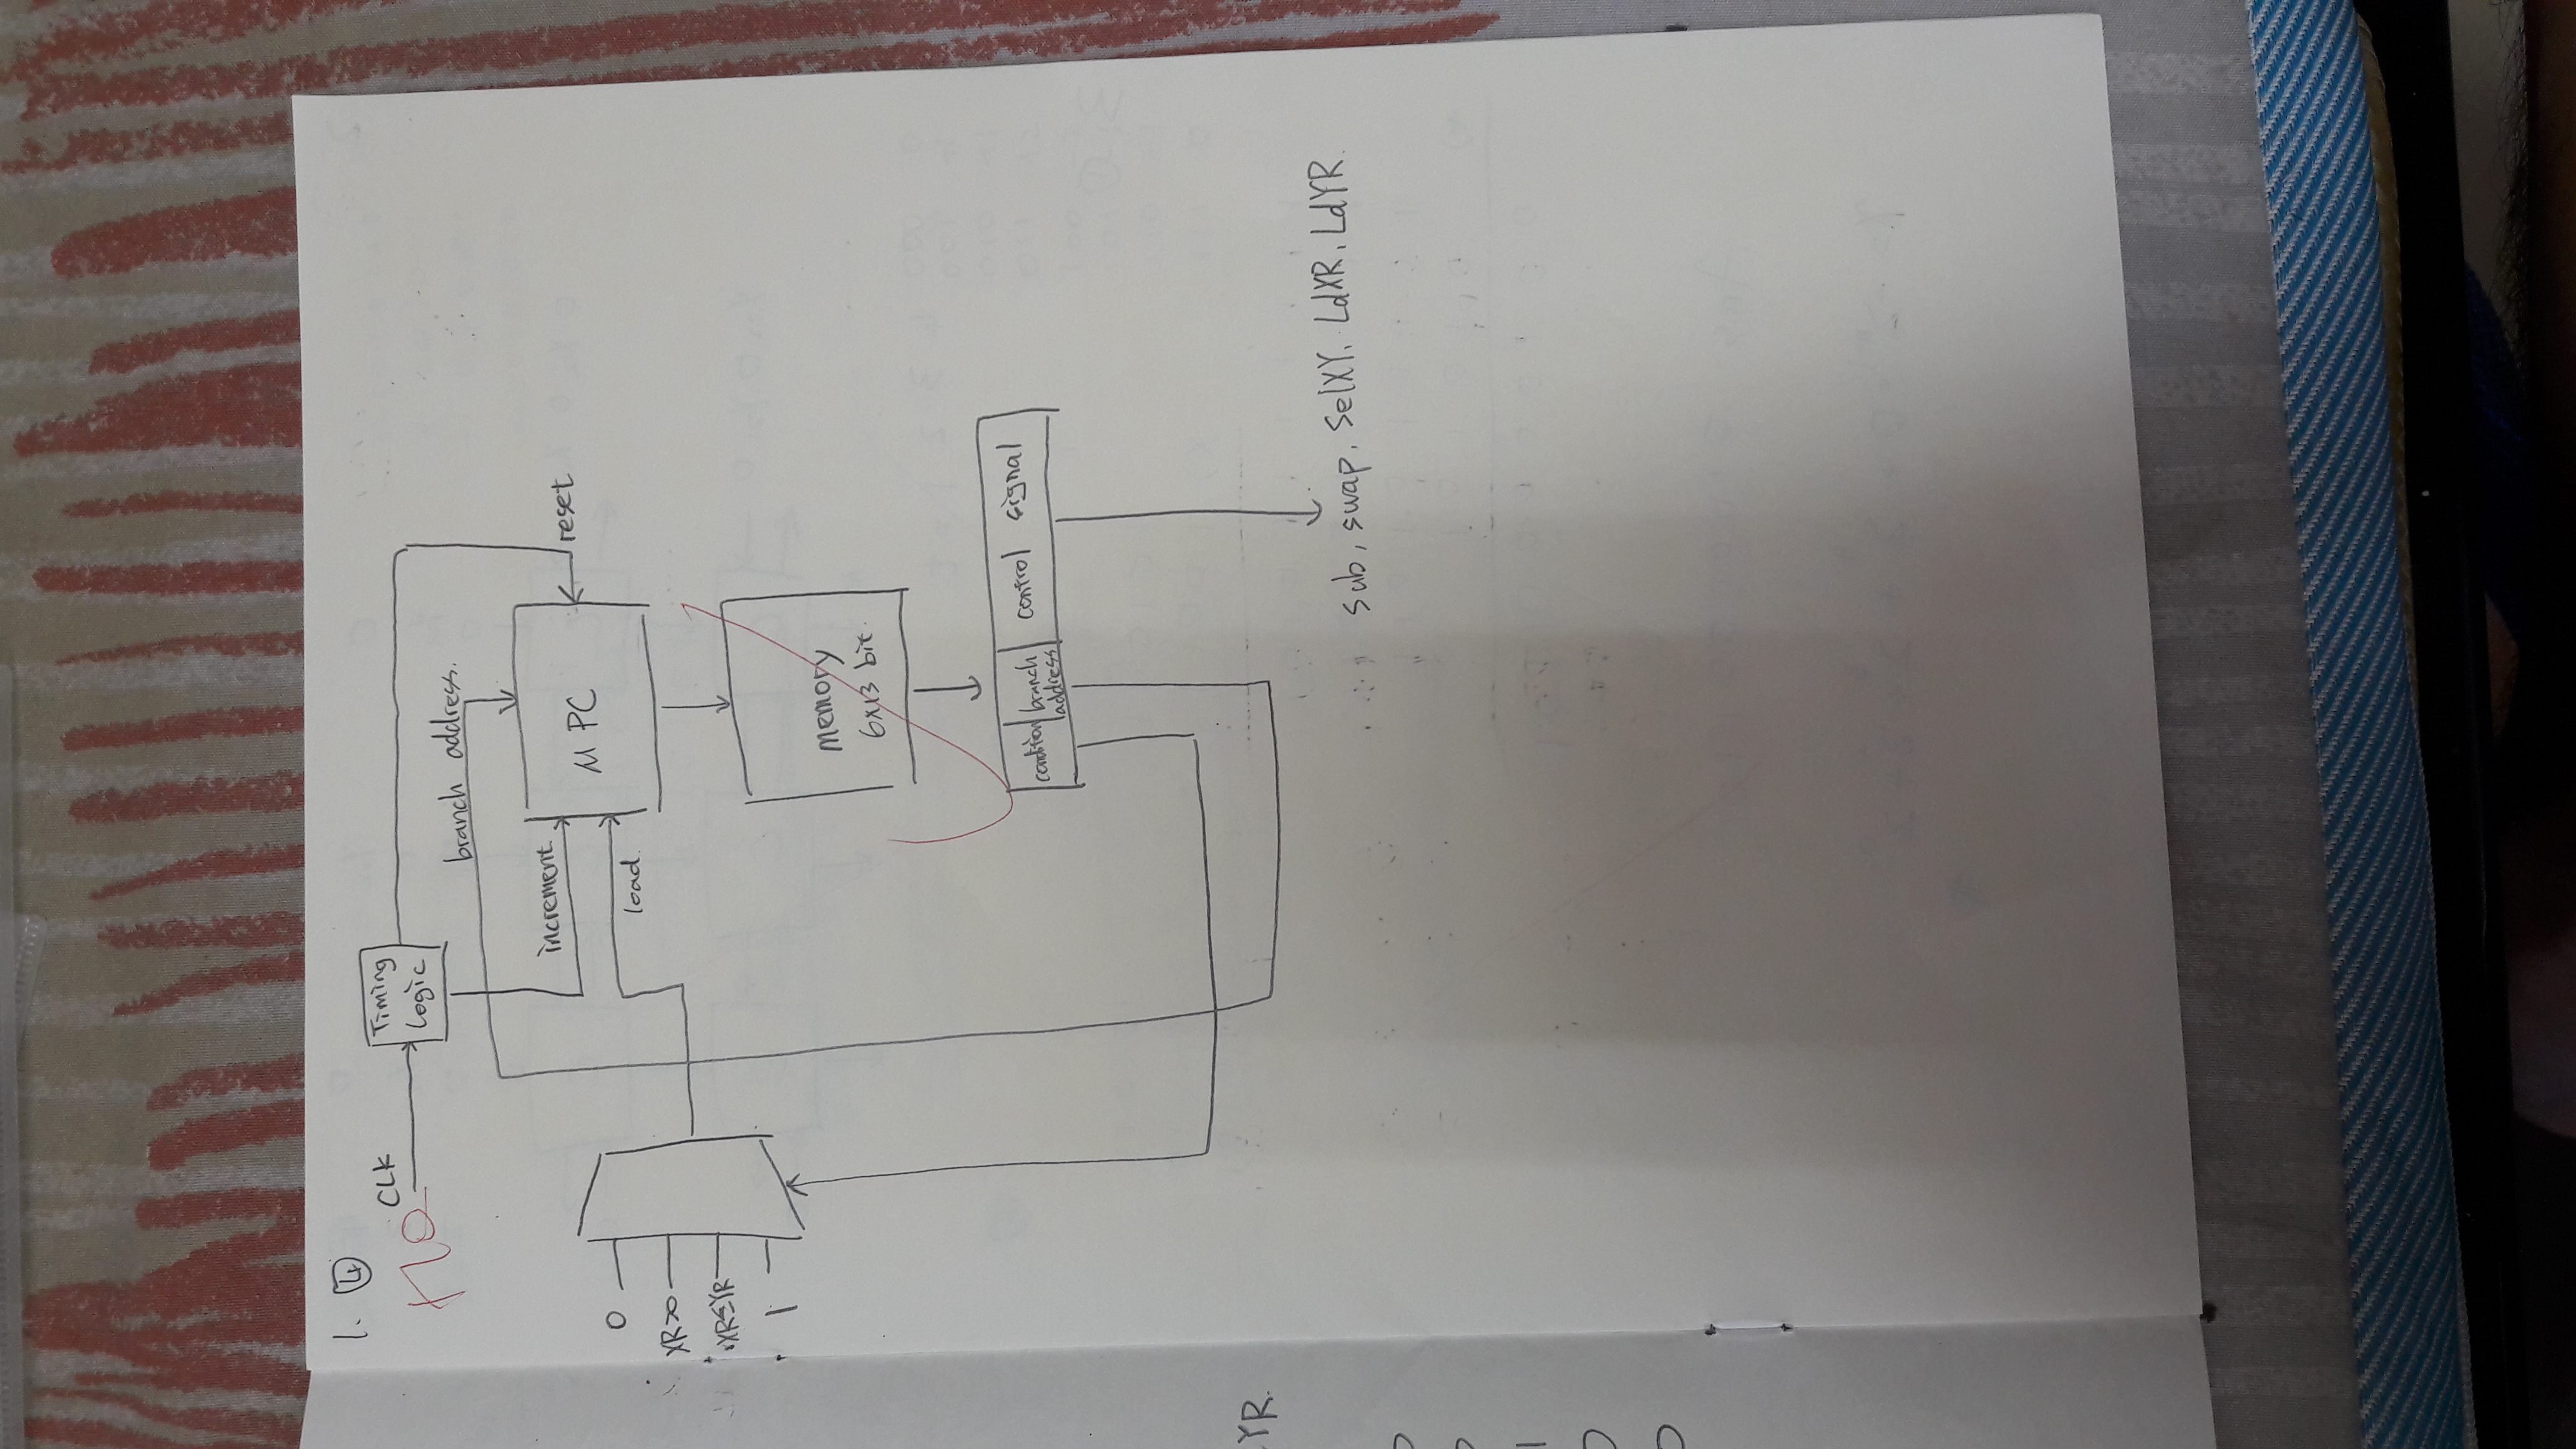 1. ④
+10
CLK
Timing
Logic
branch address.
increment
μ PC
reset
load.
0
XR>0
XR≤YR
1
memory
6x13 bit.
condition
branch
address
control signal
sub, swap, SelXY, LdXR, LdYR.
YR.
0
1
0
0